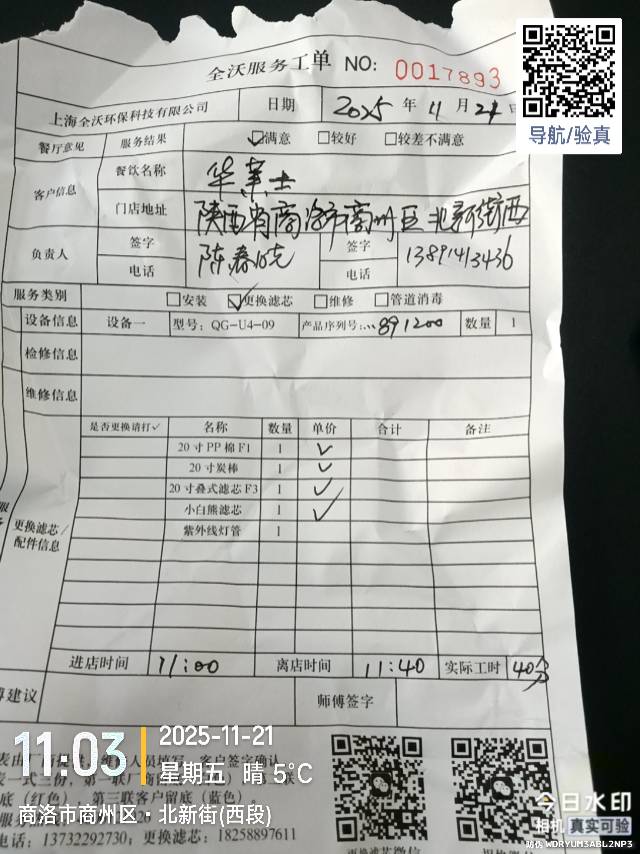 全沃服务工单 NO: 0017893
导航/验真
上海全沃环保科技有限公司 日期 2025 年 11 月 21 日
餐厅意见 服务结果 ☑满意 □较好 □较差不满意
客户信息 餐饮名称 华莱士
门店地址 陕西省商洛市商州区北新街西
负责人 签字 陈春晓 签字
电话 电话 13891413436
服务类别 □安装 ☑更换滤芯 □维修 □管道消毒
设备信息 设备一 型号: QG-U4-09 产品序列号: 891200 数量 1
检修信息
维修信息
是否更换请打✓ 名称 数量 单价 合计 备注
20寸PP棉F1 1 ✓
20寸炭棒 1 ✓
20寸叠式滤芯F3 1 ✓
小白熊滤芯 1 ✓
紫外线灯管 1
更换滤芯/
配件信息
进店时间 11:00 离店时间 11:40 实际工时 40分
建议 师傅签字
11:03 2025-11-21
星期五 晴 5°C
人员填写，客户签字确认
一式三份，第一联
底（红色） 第三联客户留底（蓝色）
商洛市商州区·北新街(西段)
电话: 13732292730; 更换滤芯: 18258897611
更换滤芯微信
今日水印
相机 真实可验
防伪 WDRYUM3ABL2NP3